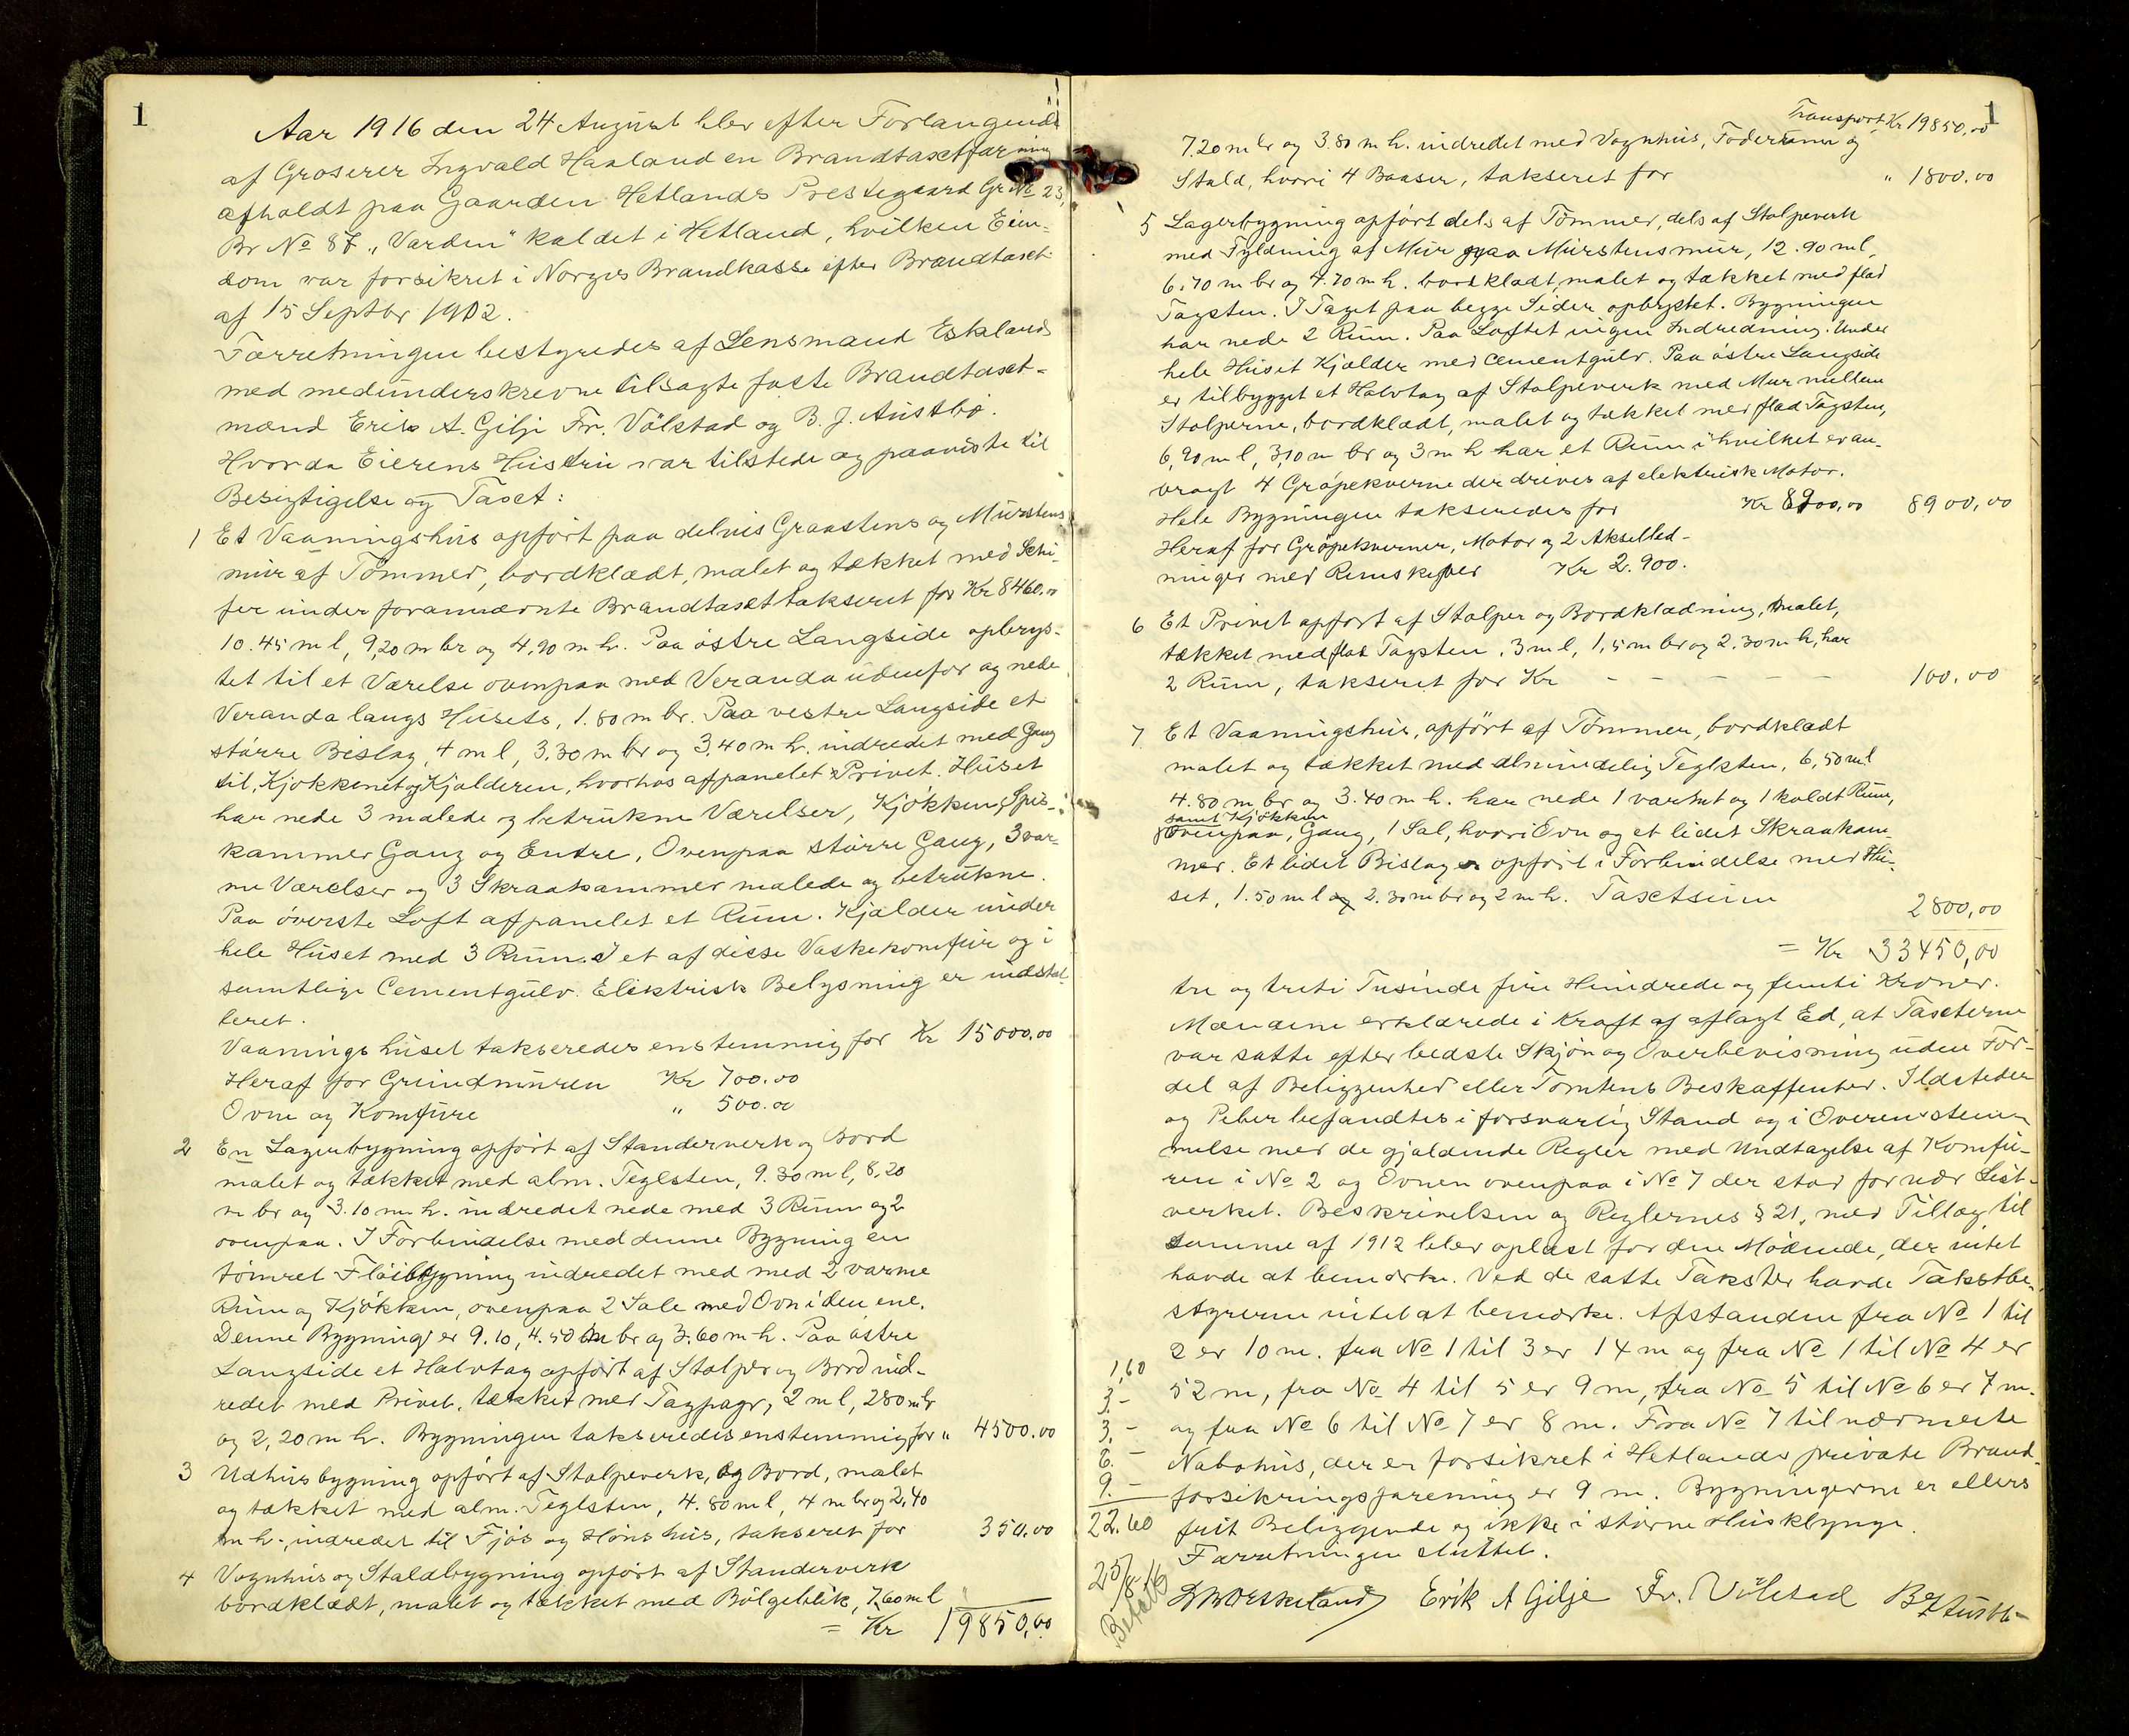 1
Aar 1916 den 24 August blev efter Forlangende
af Groserer Ingvald Haaland en Brandtaxtforretning
afholdt paa Gaarden Hetlands Prestegaard Gr No 23,
Br No 87 „Varden" kaldet i Hetland, hvilken Eien-
dom var forsikret i Norges Brandkasse efter Brandtaxt
af 15 Septbr 1902.
Forretningen bestyredes af Lensmand Eskeland
med medunderskrevne tilsagte faste Brandtaxt-
mænd Erik A. Gilje Fr. Völstad og B. J. Austbø.
Hvorda Eierens Hustru var tilstede og paaviste til
Besigtigelse og Taxt:
1 Et Vaaningshus opført paa delvis Graastens og Murstens
mur af Tømmer, bordklædt, malet og tækket med Ski-
fer under forannævnte Brandtaxt takseret for Kr 8460.00
10.45 m l, 9,20 m br og 4,90 m h. Paa østre Langside opbrys-
tet til et Værelse ovenpaa med Veranda udenfor og nede
Veranda langs Husets, 1.80 m br. Paa vestre Langside et
større Bislag, 4 m l, 3,30 m br og 3,40 m h. indredet med Gang
til, Kjøkkenet og Kjælderen, hvorhos afpanelet Privet. Huset
har nede 3 malede og betrukne Værelser, Kjøkken, Spis-
kammer Gang og Entre, Ovenpaa større Gang, 3 var-
me Værelser og 3 Skraakammer malede og betrukne.
Paa øverste Loft afpanelet et Rum. Kjælder under
hele Huset med 3 Rum. I et af disse Vaskekomfur og i
samtlige Cementgulv. Elektrisk Belysning er indstal-
leret.
Vaaningshuset takseredes enstemmig for Kr 15000.00
Heraf for Grundmuren Kr 700.00
Ovne og Komfure „ 500.00
2 En Lagerbygning opført af Standerverk og Bord
malet og tækket med alm. Teglsten, 9.30 m l, 8,20
m br og 3.10 m h. indredet nede med 3 Rum og 2
ovenpaa. I Forbindelse med denne Bygning en
tømret Fløibygning indredet med med 2 varme
Rum og Kjøkken, ovenpaa 2 Sale med Ovn i den ene.
Denne Bygning er 9.10, 4.50 m br og 3.60 m h. Paa østre
Langside et Halvtag opført af Stolper og Bord ind-
redet med Privet, tækket med Tagpapr, 2 m l, 280 m br
og 2,20 m h. Bygningen takseredes enstemmig for „ 4500.00
3 Udhusbygning opført af Stolpeverk, og Bord, malet
og tækket med alm. Teglsten, 4.80 m l, 4 m br og 2,40
m h., indredet til Fjøs og Hønshus, takseret for 350.00
4 Vognhus og Staldbygning opført af Standerverk
bordklædt, malet og tækket med Bølgeblik, 7,60 m l
= Kr 19850,00
1
Transport Kr 19850,00
7.20 m br og 3.80 m h. indredet med Vognhus, Foderrum og
Stald, hvori 4 Baaser, takseret for „ 1800.00
5 Lagerbygning opført dels af Tømmer, dels af Stolpeverk
med Fyldning af Mur paa Murstensmur, 12.90 m l,
6.70 m br og 4.70 m h. bordklædt, malet og tækket med flad
Tagsten. I Taget paa begge Sider opbrystet. Bygningen
har nede 2 Rum. Paa Loftet ingen Indredning. Under
hele Huset Kjælder med Cementgulv. Paa østre Langside
er tilbygget et Halvtag af Stolpeverk med Mur mellem
Stolperne, bordklædt, malet og tækket med flad Tagsten,
6,90 m l, 3,10 m br og 3 m h har et Rum i hvilket er an-
bragt 4 Grøpekverne der drives af elektrisk Motor.
Hele Bygningen takseredes for Kr 8900,00 8900,00
Heraf for Grøpekverner, Motor og 2 Akselled-
ninger med Remskiver Kr 2.900.
6 Et Privet opført af Stolper og Bordklædning, malet,
tækket med flad Tagsten, 3 m l, 1,5 m br og 2.30 m h, har
2 Rum, takseret for Kr - - - - - 100.00
7. Et Vaaningshus, opført af Tømmer, bordklædt
malet og tækket med almindelig Teglsten, 6,50 m l
4.80 m br og 3.40 m h. har nede 1 varmt og 1 koldt Rum,
samt Kjøkken
ovenpaa, Gang, 1 Sal, hvori Ovn og et lidet Skraakam-
mer. Et lidet Bislag opført i Forbindelse med Hu-
set, 1.50 m l og 2.30 m br og 2 m h. Taxtsum
2800,00
= Kr 33450,00
tre og treti Tusinde fire Hundrede og femti Kroner.
Mændene erklærede i Kraft af aflagt Ed, at Taxterne
var satte efter bedste Skjøn og Overbevisning uden For-
del af Beliggenhed eller Tomtens Beskaffenhed. Ildsteder
og Peber befandtes i forsvarlig Stand og i Overensstem-
melse med de gjældende Regler med Undtagelse af Komfu-
ren i No 2 og Ovnen ovenpaa i No 7 der stod for nær List-
verket. Beskrivelsen og Reglernes § 21, med Tillæg til
samme af 1912 blev oplæst for den Mødende, der intet
havde at bemærke. Ved de satte Takster havde Takstbe-
styreren intet at bemærke. Afstanden fra No 1 til
2 er 10 m. fra No 1 til 3 er 14 m og fra No 1 til No 4 er
52 m, fra No 4 til 5 er 9 m, fra No 5 til No 6 er 7 m.
og fra No 6 til No 7 er 8 m. Fra No 7 til nærmeste
Nabohus, der er forsikret i Hetlands private Brand-
forsikringsforening er 9 m. Bygningerne er ellers
frit Beliggende og ikke i større Husklynge.
Forretningen sluttet.
1,60
3.-
3.-
6.-
9.-
22.60
25/8 16
Betalt
Eskeland Erik A Gilje Fr. Völstad B J Austbø